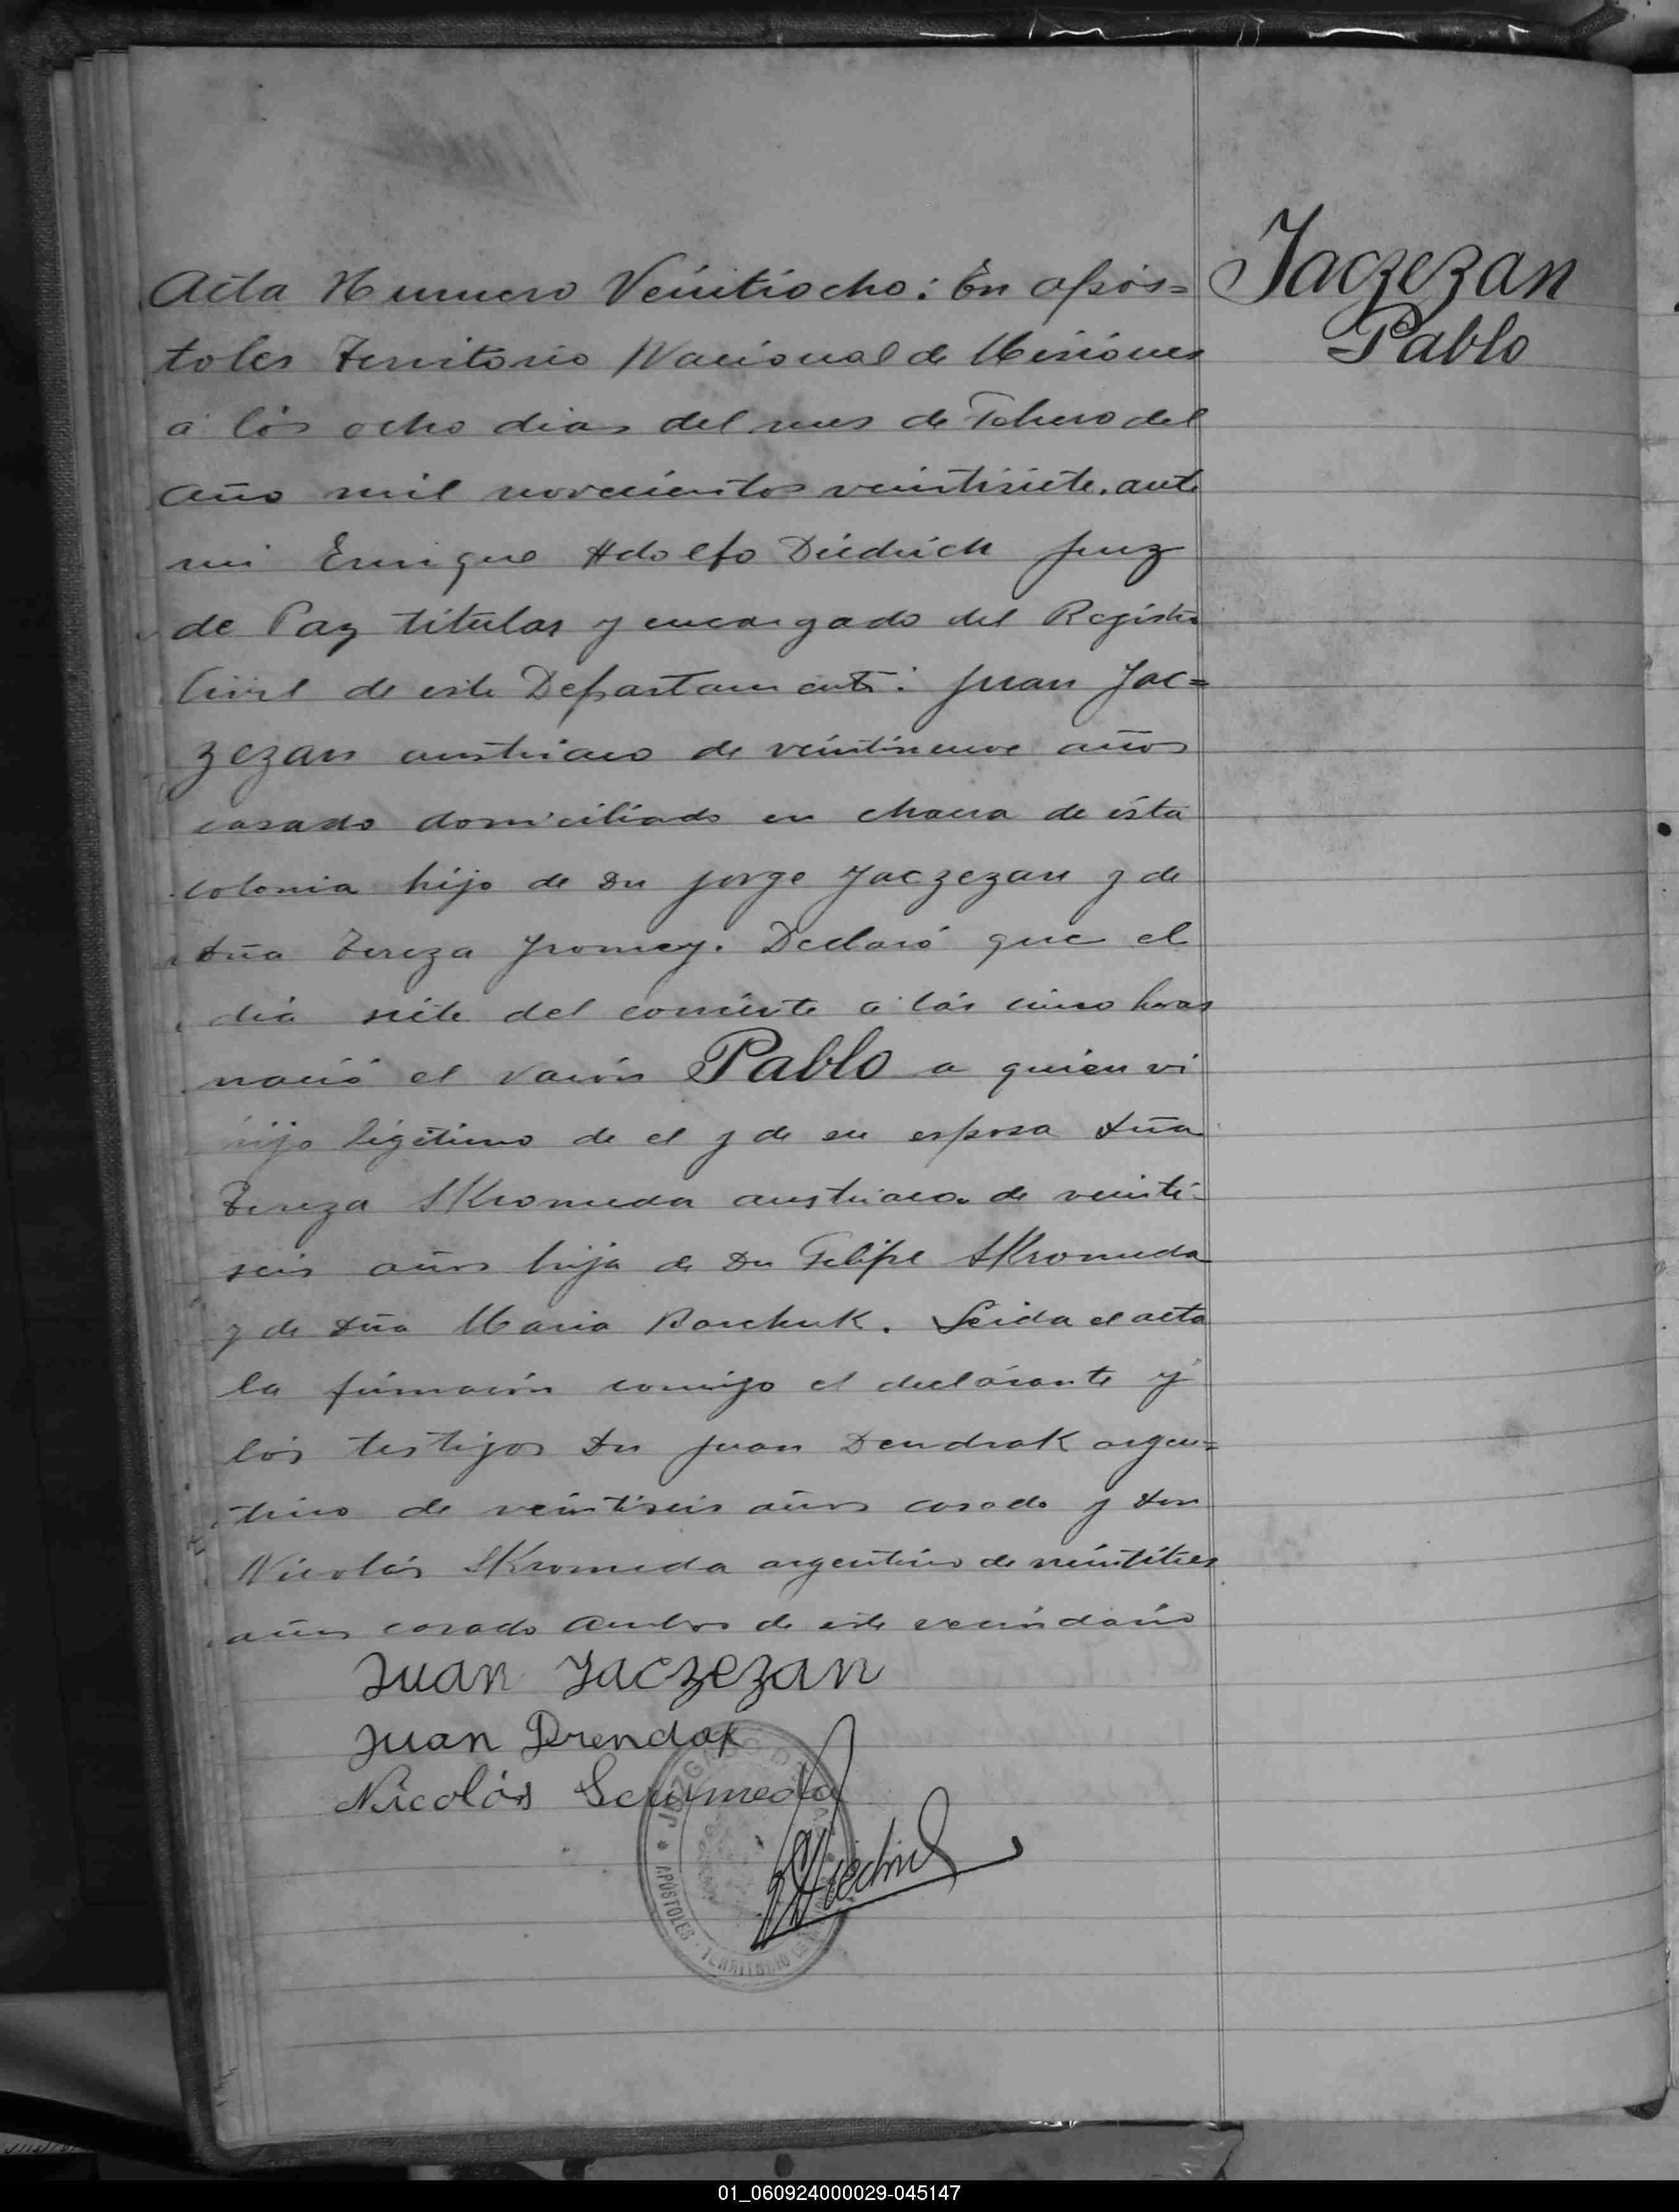 Acta Numero Veintiocho: En Após=
toles Territorio Nacional de Misiones
a los ocho dias del mes de Febrero del
año mil novecientos veintisiete. ante
mi Enrique Adolfo Diedrich Juez
de Paz titular y encargado del Registro
Civil de este Departamento: Juan Jac=
zezan austriaco de veintinueve años
casado domiciliado en chacra de ésta
colonia hijo de Dn Jorge Jaczezan y de
Dña Tereza Jromey. Declaró que el
dia siete del corriente a las cinco horas
nació el varón Pablo a quien vi
hijo legitimo de el y de su esposa Dña
Tereza SKromeda austriaca de veinti-
seis años hija de Dn Felipe SKromeda
y de Dña Maria BarchuK. Leida el acta
la firmaron conmigo el declarante y
los testigos Dn Juan DendraK argen=
tino de veintiseis años casado y don
Nicolás SKromeda argentino de veintitres
años casado ambos de este vecindario
Juan Jaczezan
Juan Drendak
Nicolás Scrumeda
Diedrich
JUZGADO DE PAZ
APÓSTOLES - TERRITORIO DE MISIONES
Jaczezan
Pablo
01_060924000029-045147